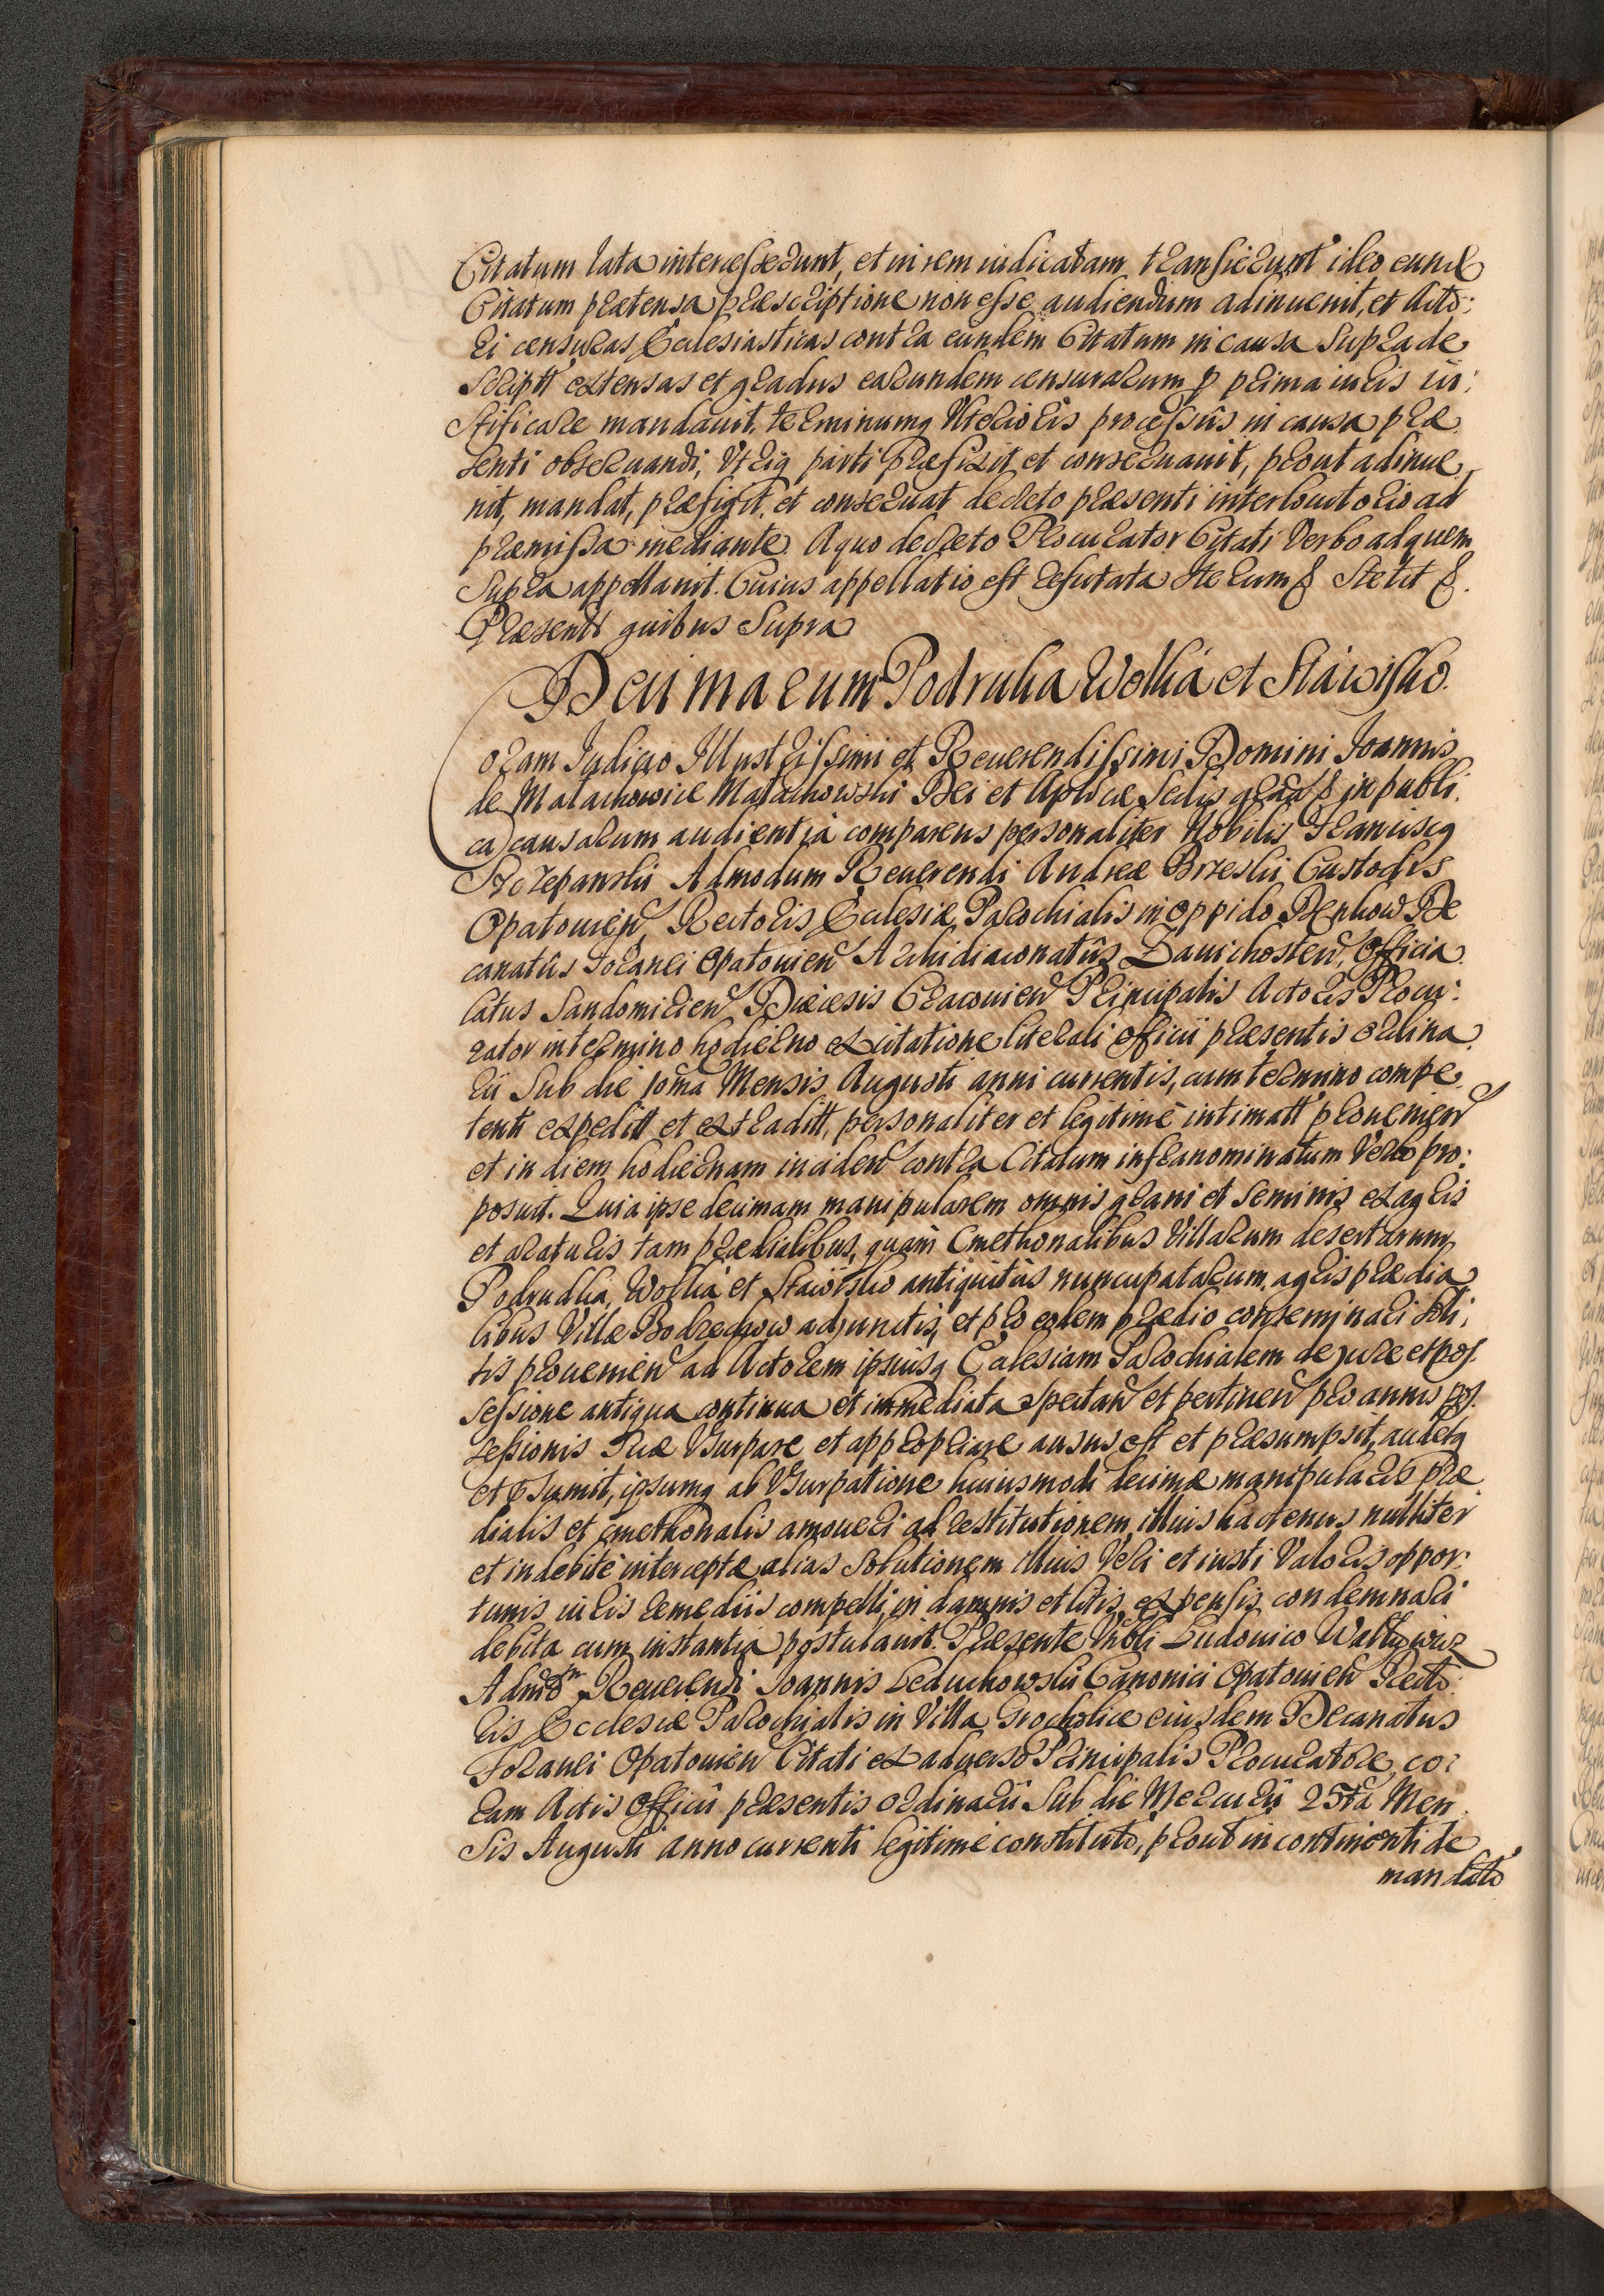 Citatum lata intercesserunt, et in rem iudicatam transierunt ideo eund
Citatum praetensa praescriptione non esse audiendum adinuenit, et Acto:
ri censuras Ecclesiasticas contra eundem Citatum in causa supra de
scriptt extensas et gradus earundem censurarum p prima iuris iu:
stificare mandauit, terminumq Vlterioris processus in causa prae
senti obseruandi, Vtriq parti praefixit et conseruauit, prout adinue
nit, mandat, praefigit, et conseruat decreto praesenti interlocutorio ad
praemissa mediante. A quo decreto Procurator Citati Verbo ad quem
supra appellauit. Cuius appellatio est refutata Iterum & Stetit &.
Praesentt quibus Supra
Decimarum Podrudka Wolka et Stawisko.
Coram Iudicio Illustrissimi et Reuerendissimi Domini Joannis
de Małachowice Małachowski Dei et Aplicae Sedis gratia & in publi
ca causarum audientia comparens personaliter Nobilis Franciscq
Szczepanski Admodum Reuerendi Andreae Brzeski Custodis
Opatouien, Rectoris Ecclesiae Parochialis in Oppido Denkow De
canatûs Foranei Opatouien Archidiaconatûs Zauichosten, Officia
latus Sandomirien Diaecesis Cracouien Principalis Actoris Procu:
rator in termino hodierno ex citatione literali officii praesentis ordina
rii Sub die 10ma Mensis Augusti anni currentis, cum termino compe
tenti expeditt et extraditt, personaliter et legitimè intimatt prouenien
et in diem hodiernam inciden contra Citatum infranominatum Verbo pro:
posuit. Quia ipse decimam manipularem omnis grani et seminis ex agris
et araturis tam praedialibus, quàm Cmethonalibus Villarum desertarum
Podrudka, Wolka et Stawisko antiquitùs nuncupatarum, agris praedia
libus Villae Bodzechow adjunctis, et pro eodem praedio conseminari soli:
tis prouenien ad Actorem ipsiusq Ecclesiam Parochialem de jure et pos
sessione antiqua continua et immediata spectan et pertinen pro annis pos
sessionis suae Vsurpare et appropriare ausus est et praesumpsit, audetq
et psumit, ipsumq ab Vsurpatione huiusmodi decimae manipularis prae
dialis et cmethonalis amoueri ad restitutionem illius hactenus nulliter
et indebitè interceptae alias solutionem illius Veri et iusti Valoris oppor:
tunis iuris remediis compelli, in damnis et litis expensis condemnari
debita cum instantia postulauit. Praesente Nobli Ludouico
Admodm Reuerendi Joannis Leduchowski Canonici Opatouien Recto
ris Ecclesiae Parochialis in Villa Grocholice eiusdem Decanatus
Foranei Opatouien Citati ex aduerso Principalis Procuratore, co:
ram Actis officii praesentis ordinarii Sub die Mercurii 25ta Men
sis Augusti anno currenti legitimè constituto, prout in continenti de
mandato